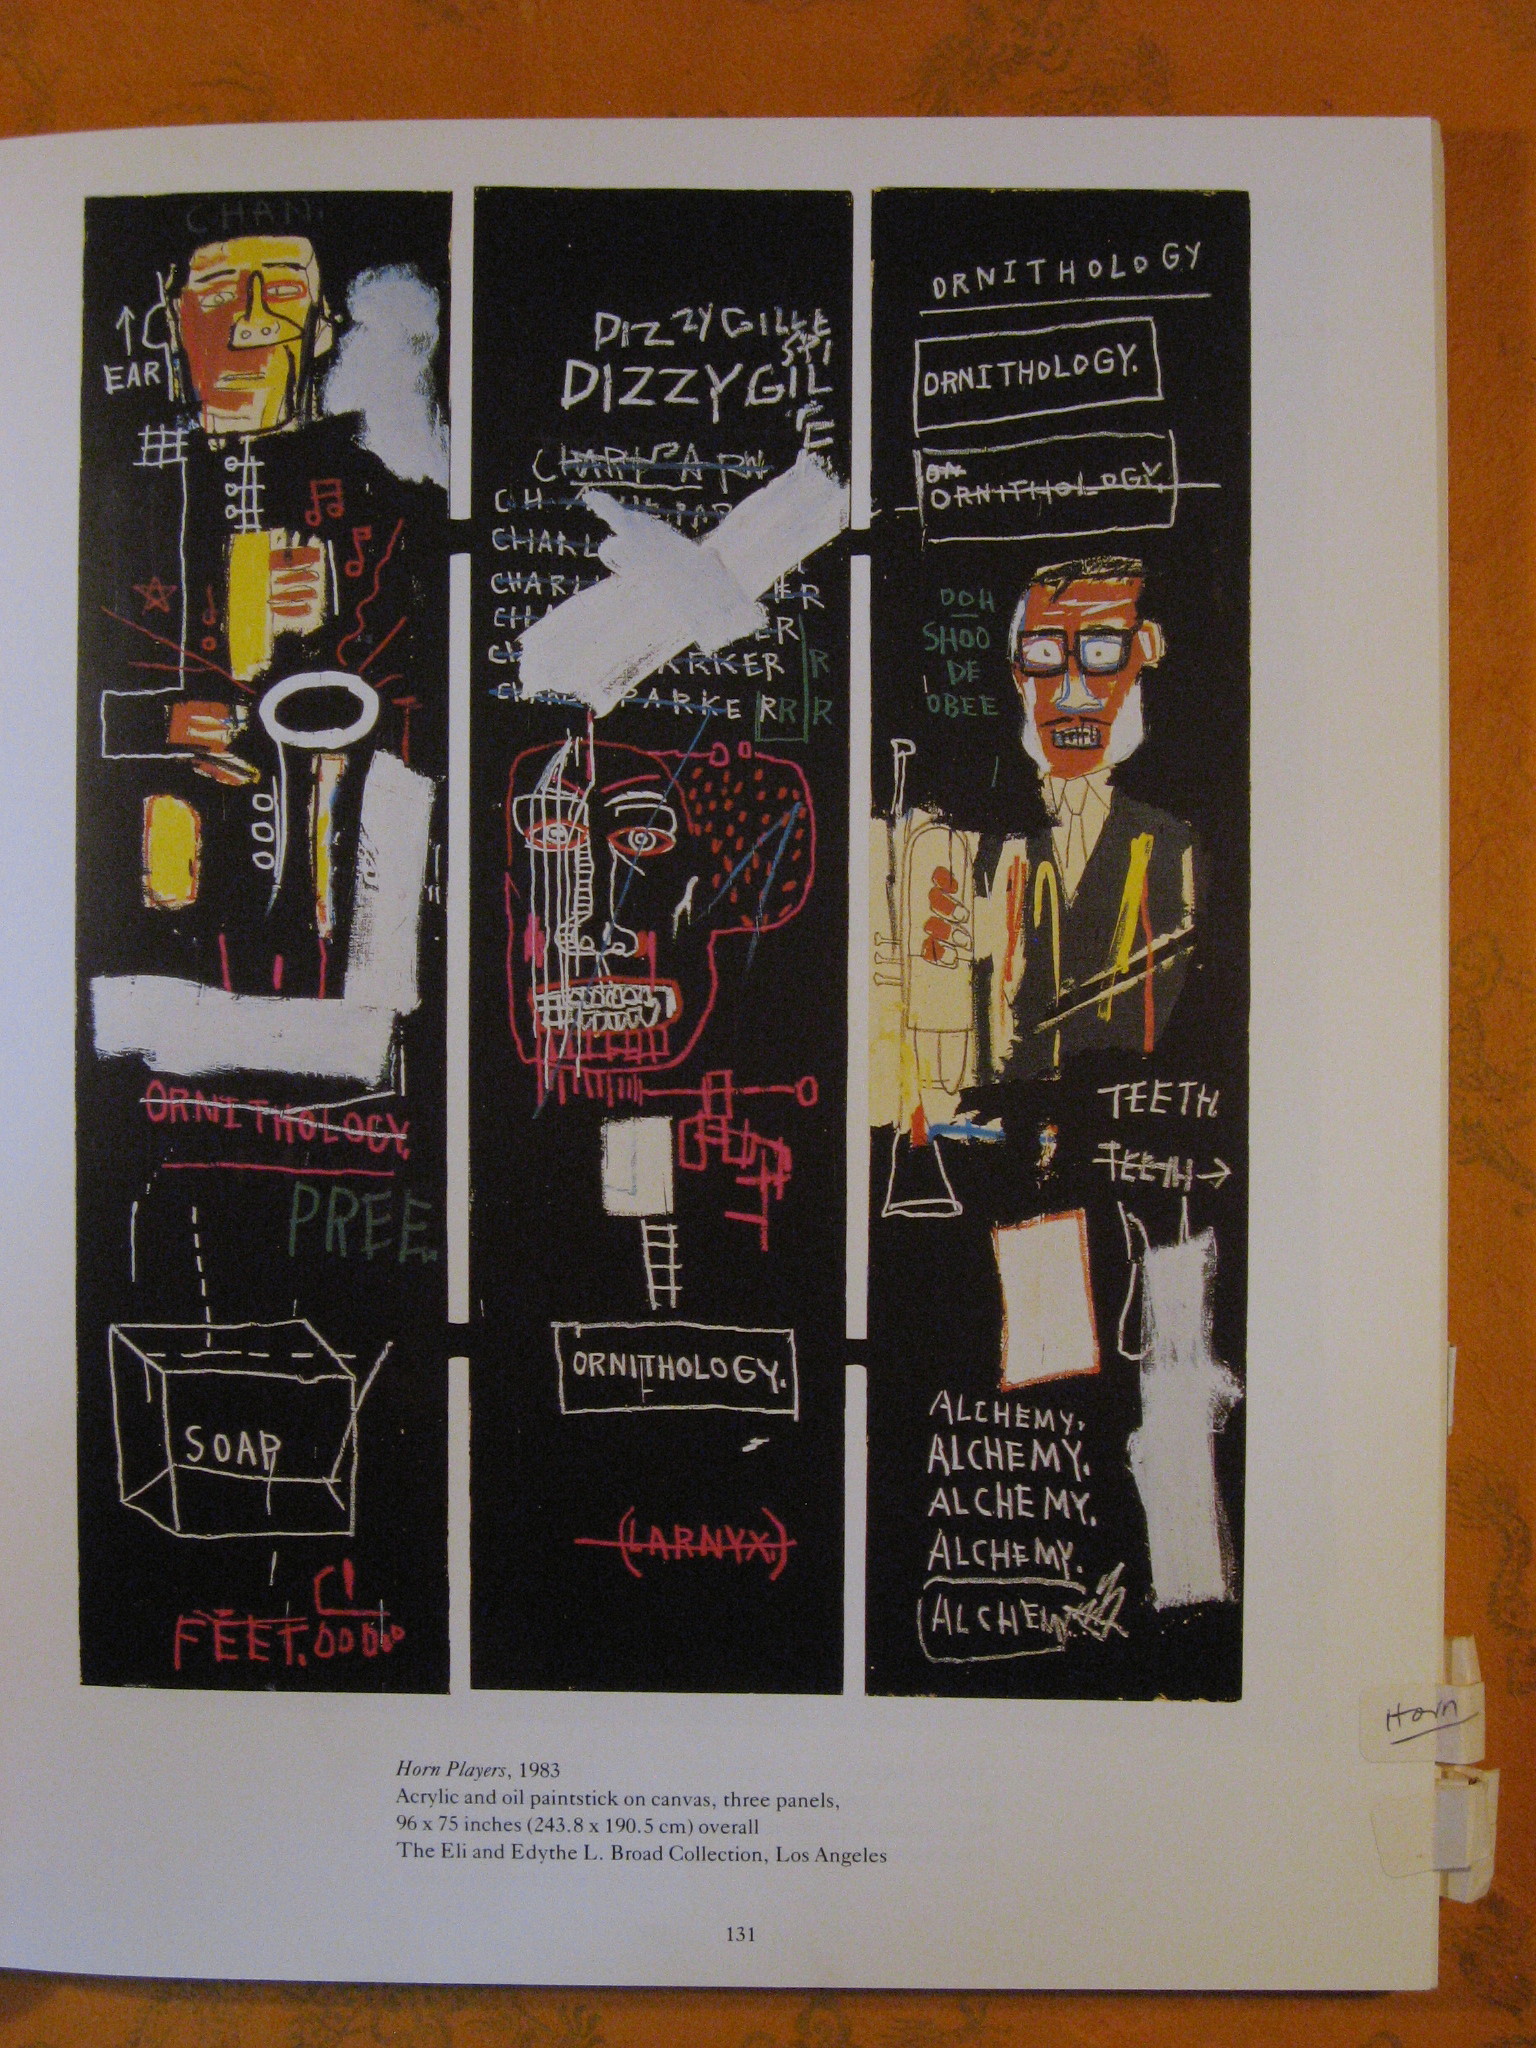 CHAN.
EAR
ORNITHOLOGY.
PREE.
SOAP
FEET.
DIZZY GILLE
SPI
DIZZY GIL
CHARL
CHARL
PARKER
PARKER R R
R
R
ORNITHOLOGY.
(LARNYX.)
ORNITHOLOGY
ORNITHOLOGY.
ORNITHOLOGY.
OOH
SHOO
DE
OBEE
TEETH.
TEETH
ALCHEMY.
ALCHEMY.
ALCHEMY.
ALCHEMY.
ALCHEM
Horn
Horn Players, 1983
Acrylic and oil paintstick on canvas, three panels,
96 x 75 inches (243.8 x 190.5 cm) overall
The Eli and Edythe L. Broad Collection, Los Angeles
131